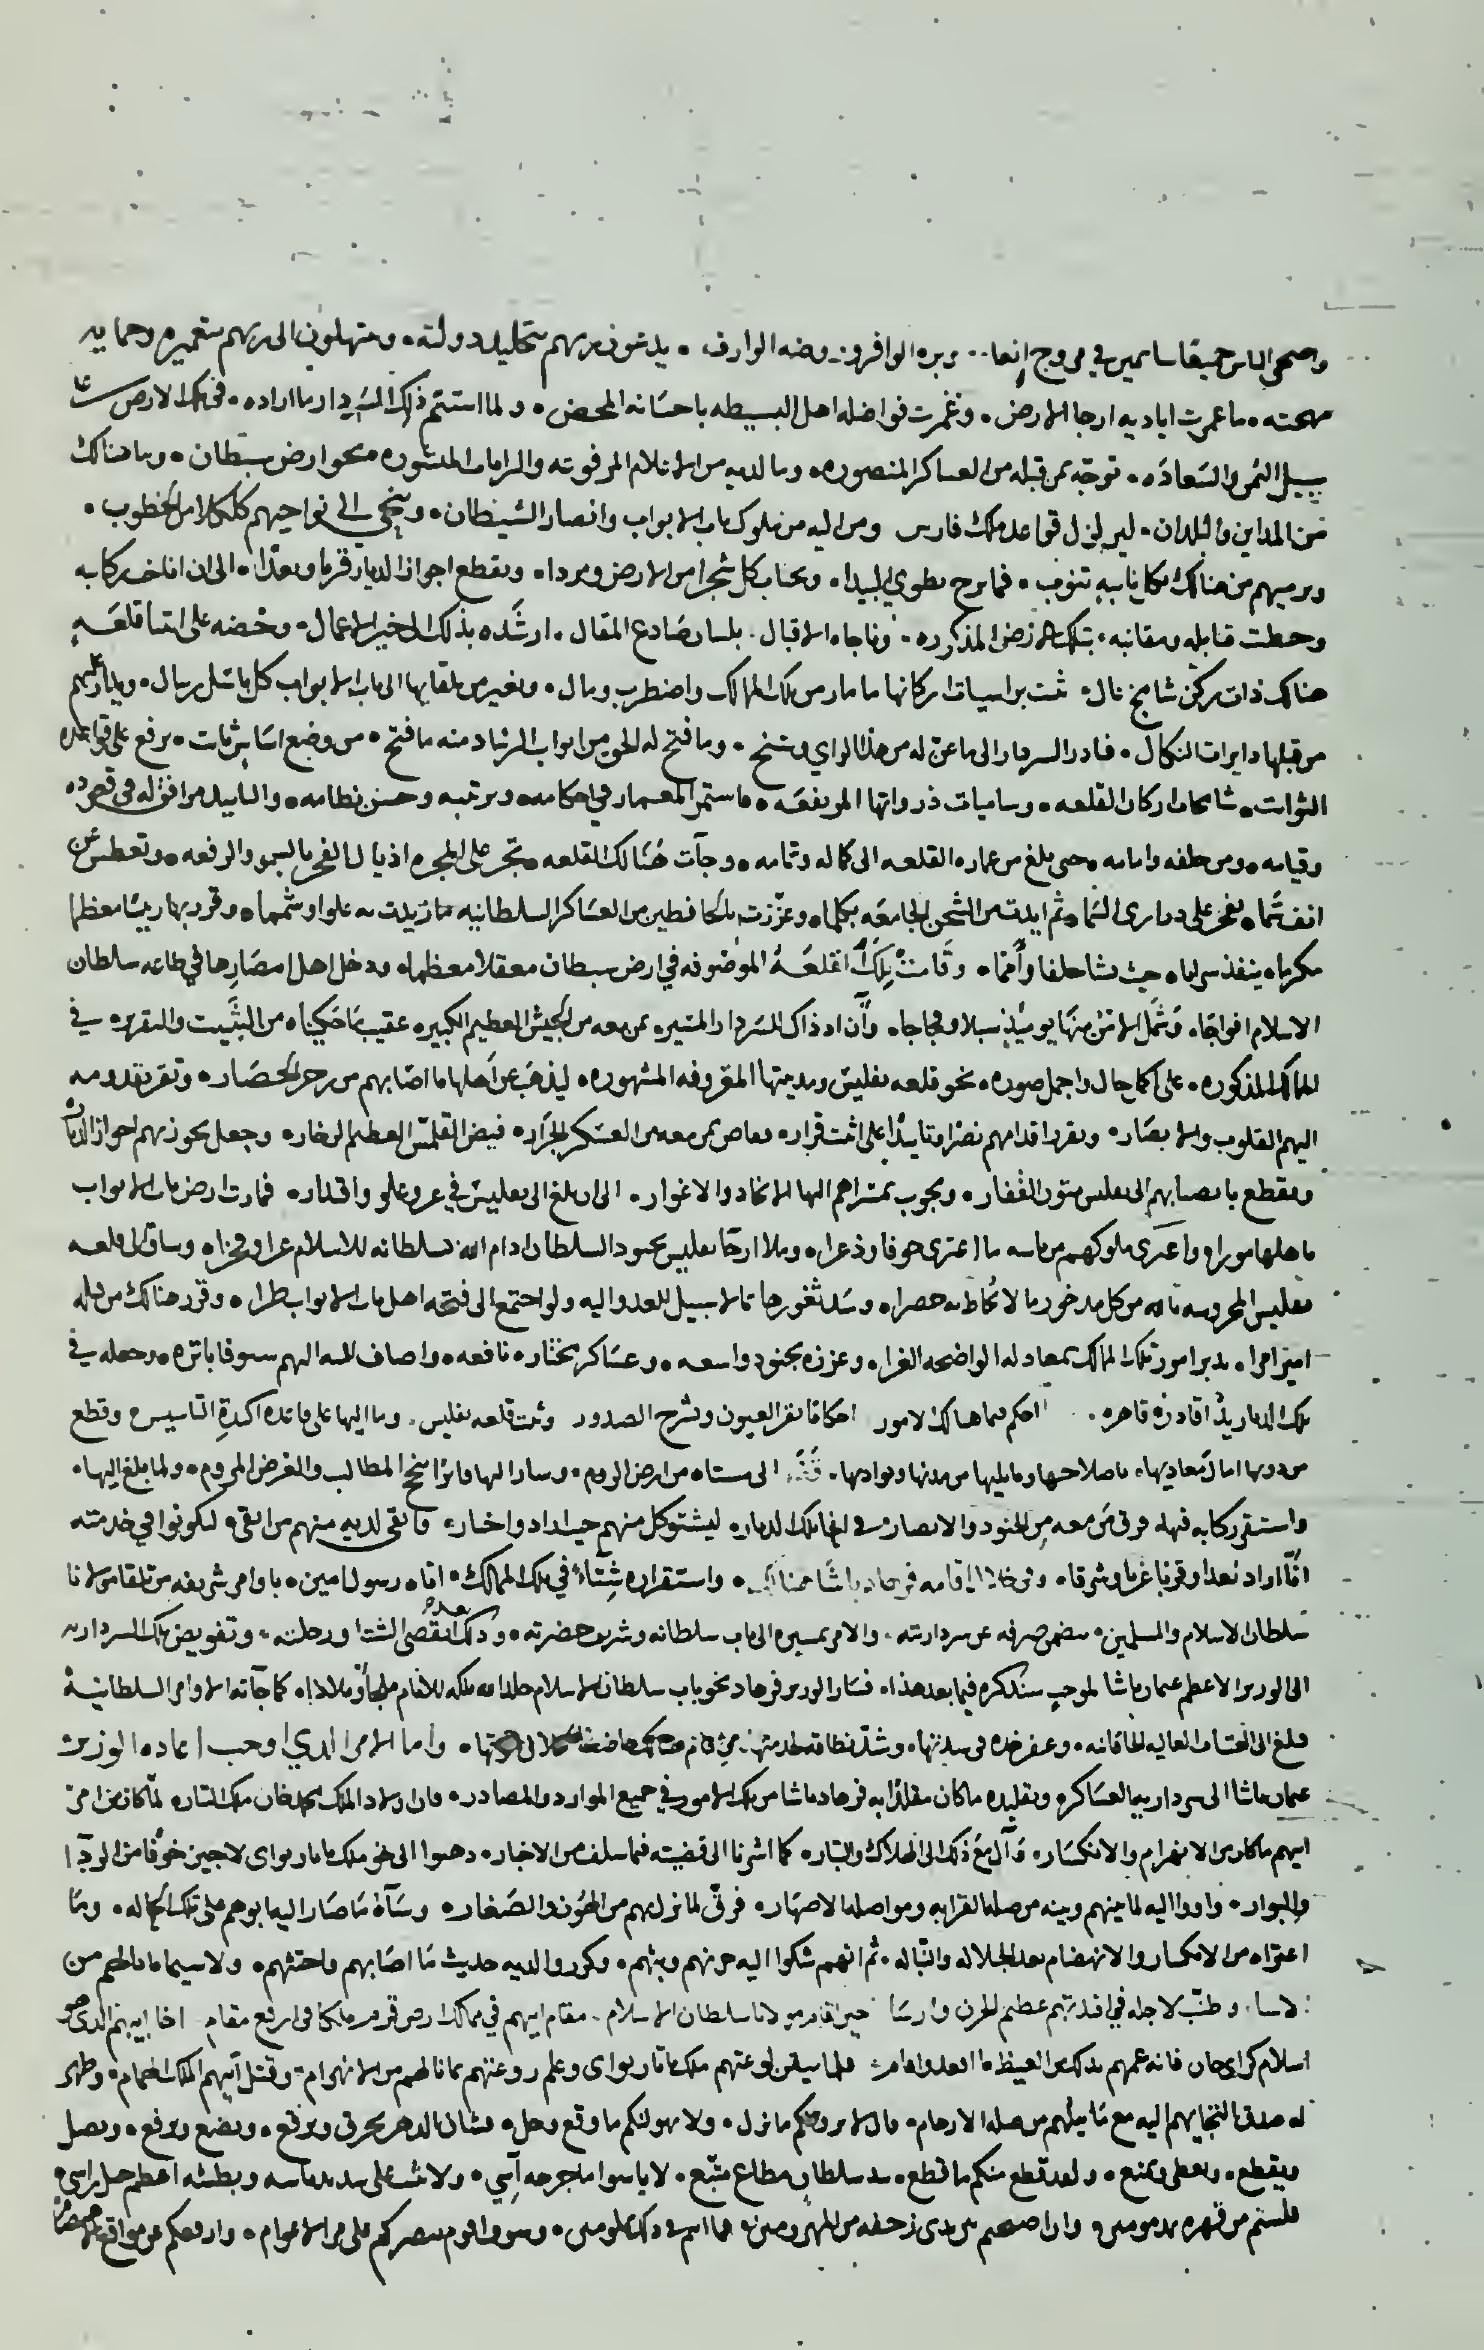 واضحى الناس جميعا سايمين في مروج إنعا.. وبره الوافر وروضه الوارف • يدعون ربهم بتخليد دولته • ومبتهلون الى ربهم بتعميره وحمايه
مهجته • ما عمرت اياديه ارجا الارض • وغمرت فواضله اهل البسيطه باحسانه المحض • ولما استتم ذلك السردار ما اراده • في تلك الارض على
سبيل اليمن والسعاده • توجه بمن قبله من العساكر المنصوره • وما لديه من الاعلام المرفوعه والرايات المنشوره • نحو ارض سبطان • وما هنالك
من المداين والبلدان • ليزلزل قواعد ملك فارس ومن اليه من ملوك باب الابواب وانصار الشيطان • وينحي الى نواحيهم كلكلا من الخطوب •
ويرميهم من هنالك بكل نايبه تنوب • فما برح يطوي البيدا • ويجتاب كل شجرا من الارض ومردا • ويقطع اجواز الديار قربا وبعدا • الى ان اناخ ركابه
وحطت قنابله ومقانبه • بتلك الارض المذكوره • وناجاه الاقبال • بلسان صادع المقال • ارشده بذلك الى خير الاعمال • وحضه على ابتنا قلعه
هناك ذات ركن شامخ عال • تثبت براسيات اركانها ما مار من تلك الممالك واضطرب ومال • ويغير من تلقايها الى باب الابواب كل باسل ريبال • ويدار عليهم
من قبلها دايرات النكال • فبادر السردار الى ما عن له من هذا الراي وسنح • وما فتح له الحق من ابواب الرشاد منه ما فتح • من وضع اساس ثابت • يرفع على قواعده
الثوابت • شامخات اركان القلعه • وساميات ذرواتها المرتفعه • فاستمر المعمار في احكامه • وترتيبه وحسن نظامه • والتاييد مرافق له في قعوده
وقيامه • ومن خلفه وامامه • حتى بلغ من عماره القلعه الى كماله وتمامه • وجآت هنالك القلعه • تجر على المجره اذيالها لفخر بالسمو والرفعه • وتعطس عن
انف شما • تفخر على دراري السما • ثم ايدت من الشحن الجامعه بكلما • وعززت بالمحافظين من العساكر السلطانيه ما زيدت به علوا وشمما • وقرر بها رييسا معظما
مكرما • ينفذ سراياه حيث يشا خلفا وأمما • وقامت تلك القلعة الموضوعه في ارض سبطان معقلا معظما • ودخل اهل امصارها في طاعه سلطان
الاسلام افواجا • وشمل الامن منها يوميذ سبلا وفجاجا • وآن اذ ذاك للسردار المسير • بمن معه من الجيش العظيم الكبير • عقيب ما حكيناه من التثبيت والتقرير • في
الممالك المذكوره • على اكمل حال واجمل صوره • نحو قلعه تفليس ومدينتها المعروفه المشهوره • ليذهب عن اهلها ما اصابهم من حر الحصار • وتقر بقدومه
اليهم القلوب والابصار • ويقرر اقدامهم نصرا وتاييدا على اثبت قرار • فغاص بمن معه من العسكر الجرار • فيض القلمس العظيم الزخار • وجعل يحوز بهم اجواز الديار
ويقطع بانصبابهم الى تفليس متون القفار • ويجوب بمسراهم اليها الانجاد والاغوار • الى ان بلغ الى تفليس في عز وعلو واقتدار • فمارت ارض باب الابواب
باهلها مورا • واعترى ملوكهم من باسه ما اعترى خوفا وذعرا • وملا ارجآ تفليس بجنود السلطان ادام الله بسلطانه للاسلام عزا وفخرا • وساق الى قلعه
تفليس المحروسه بالله من كل مدخور ما لا يحاط به حصرا • وسد ثغورها بما لا سبيل للعدو اليه ولو اجتمع الى فتحه اهل باب الابواب طرا • وقرر هنالك من قبله
اميرا مرا • يدبر امور تلك الممالك بمعادله الواضحه الغرا • وعززه بجنود واسعه • وعساكر مختاره نافعه • واضاف اليه اليهم سيوفا باتره • وجعله في
تلك الديار يدا قادره قاهره • احكم بما هنالك الامور احكاما تقر العيون وتشرح الصدور وثبت قلعه تفليس • وما اليها على قاعده اكيدة التاسيس • وقطع
من دونها امال معاديها • باصلاحها وما يليها من مدنها وبواديها • الى مستاه من ارض الروم • وسار اليها فايزا بنجح المطالب والغرض المروم • ولما بلغ اليها •
واستقر ركابه فيها • فرق من معه من الجنود والانصار • في انحا تلك الديار • ليشتو كل منهم حيث اراد واختار • وابقى لديه منهم من ابقى • ليكونوا في خدمته
انا اراد بعدا وقربا غربا وشرقا • وفي خلال اقامه فرهاد باشا هنالك • واستقراره شتآء في تلك الممالك • اتاه رسول امين • باوامر شريفه من تلقا مولانا
سلطان الاسلام والمسلمين • بتضمن صرفه عن سرداريته • والامر بمسيره الى باب سلطانه وشريف حضرته • وذلك بعد تقضي الشتا ورحلته • وتفويض تلك السرداريه
الى الوزير الاعظم عثمان باشا لموجب سنذكره فيما بعد هذا • فسار الوزير فرهاد نحو باب سلطان الاسلام خلد الله ملكه للانام ملجأ وملاذا • كما جآته الاوامر السلطانية
فبلغ الى العتبات العاليه الخاقانيه • وعفر خده في سدتها • وشد نطاقه لخدمتها • واما الامر الذي اوجب اعاده الوزير
عثمان باشا الى سرداريه العساكر • وتقليده ما كان مقلدا به فرهاد باشا من تلك الامور في جميع الموارد والمصادر • فان اولاد الملك محمد خان ملك التتار • لما كان من امر
ابيهم ما كان من الانهزام والانكسار • وآل مع ذلك الى الهلاك والتبار • كما اشرنا الى قضيته فيما سلف من الاخبار • ذهبوا الى نحو ملك ما تار بواى لاجين خوفا من الردآ
والبوار • واووا اليه لما بينهم وبينه من صله القرابه ومواصله الاصهار • فرق لما نزل بهم من الهون والصغار • وسآه ما صار اليه ابوهم من تلك الحاله • وما
اعتراه من الانكسار والانهضام بعد الجلاله والنباله • ثم انهم شكوا اليه حزنهم وبثهم • وكرروا لديه حديث ما اصابهم واجتثهم • ولا سيما ما نالهم من
الاسا • وطنب لاجله في افئدتهم عظيم الحزن وارسا حين اقام مولانا سلطان الاسلام • مقام ابيهم في ممالك ارض قرم ملكا في ارفع مقام اخا ابيهم الذي هو
اسلام كراي خان فانه عمهم بذلك من الغيظ • فلما تيقن لوعتهم ملك ما تار بواى وعلم روعتهم بما نالهم من الانهزام • وقتل ابيهم الملك الهمام • وظهر
له صدق التجايهم اليه مع ما بينهم من صله الارحام • قال لا يروعكم ما نزل • ولا يهولنكم ما وقع وحل • فشان الدهر يخرق ويرقع • ويضع ويرفع • ويصل
ويقطع • ويعطي ويمنع • ولقد قطع منكم ما قطع • يد سلطان مطاع متبع • لا ياسوا ما جرحه آسي • ولا يثبت على شديد باسه وبطشه اعظم جبل راسي •
فلستم من قهره بمذمومين • وان اصبحتم بين يدي زحفه من المهزومين • فما انتم في ذلك بملومين • وسوف اقوم بنصركم على مر الاعوام • وارفعكم عن مواقع الاهتضام